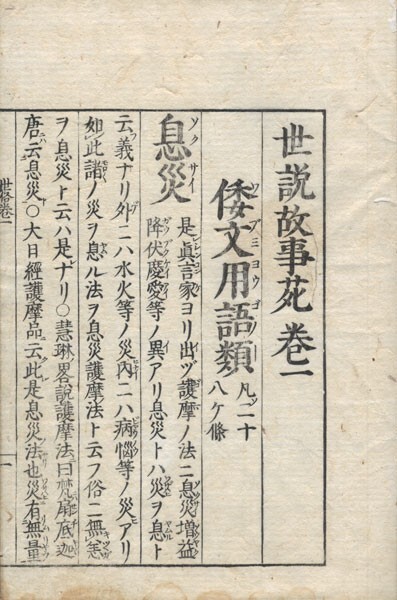 世説故事苑巻一
倭文用語類 凡二十八ケ條
息災 是眞言家ヨリ出ヅ護摩ノ法ニ息災増益
降伏慶愛等ノ異アリ息災トハ災ヲ息ト
云義ナリ外ニハ水火等ノ災内ニハ病惱等ノ災アリ
如此諸ノ災ヲ息ル法ヲ息災護摩法ト云フ俗ニ無恙
ヲ息災ト云ハ是ナリ○慧琳畧説護摩法曰梵扇底迦
唐云息災○大日經護摩品云此是息災法也災有無量
世俗卷一
一